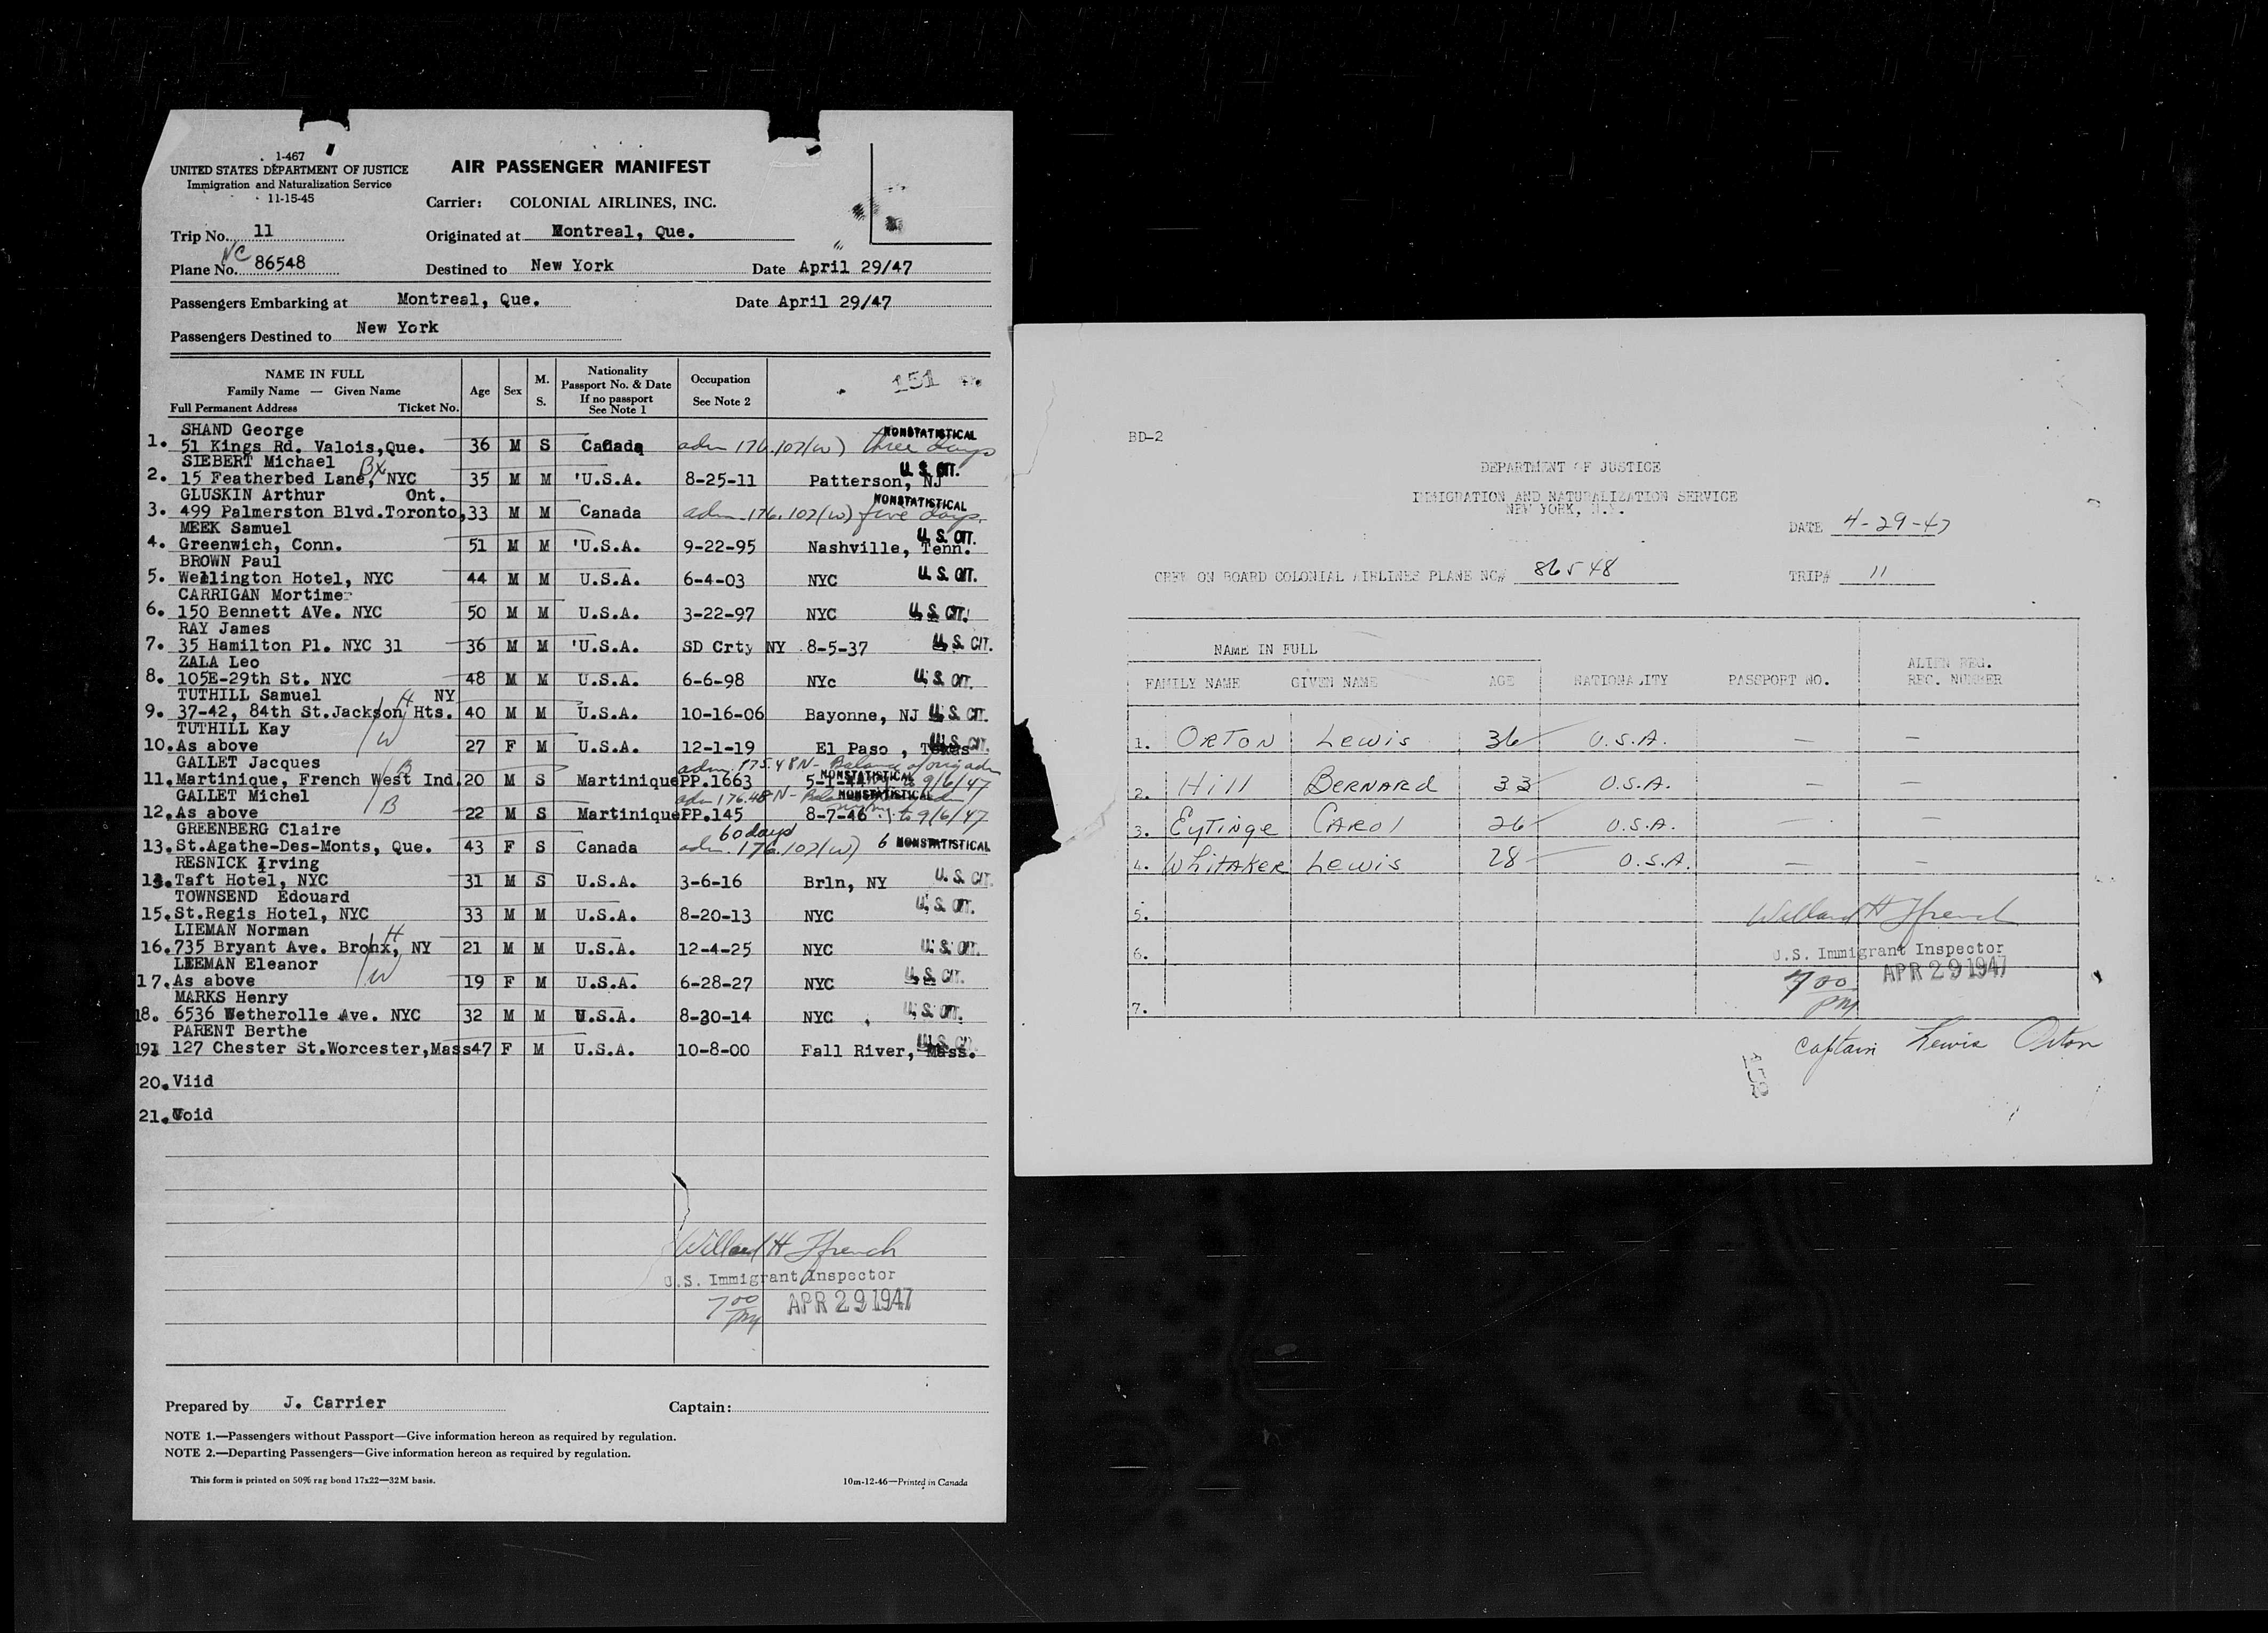 1-467
UNITED STATES DEPARTMENT OF JUSTICE
Immigration and Naturalization Service
11-15-45
AIR PASSENGER MANIFEST
Carrier: COLONIAL AIRLINES, INC.
Trip No. 11
Originated at Montreal, Que.
NC
Plane No. 86548
Destined to New York Date April 29/47
Passengers Embarking at Montreal, Que. Date April 29/47
Passengers Destined to New York
NAME IN FULL
Family Name — Given Name
Full Permanent Address Ticket No.
Age
Sex
M.
S.
Nationality
Passport No. & Date
If no passport
See Note 1
Occupation
See Note 2
151
SHAND George NONSTATISTICAL
1. 51 Kings Rd. Valois,Que. 36 M S Canada adm 176.107(w) three days
SIEBERT Michael Bx U.S. CIT.
2. 15 Featherbed Lane, NYC 35 M M 'U.S.A. 8-25-11 Patterson, NJ
GLUSKIN Arthur Ont. NONSTATISTICAL
3. 499 Palmerston Blvd.Toronto, 33 M M Canada adm. 176.107(w) five days.
MEEK Samuel U.S. CIT.
4. Greenwich, Conn. 51 M M 'U.S.A. 9-22-95 Nashville, Tenn.
BROWN Paul
5. Wellington Hotel, NYC 44 M M U.S.A. 6-4-03 NYC U.S. CIT.
CARRIGAN Mortimer
6. 150 Bennett AVe. NYC 50 M M U.S.A. 3-22-97 NYC U.S. CIT.
RAY James
7. 35 Hamilton Pl. NYC 31 36 M M 'U.S.A. SD Crty NY 8-5-37 U.S. CIT.
ZALA Leo
8. 105E-29th St. NYC 48 M M U.S.A. 6-6-98 NYc U.S. CIT.
TUTHILL Samuel H NY
9. 37-42, 84th St.Jackson Hts. 40 M M U.S.A. 10-16-06 Bayonne, NJ U.S. CIT.
TUTHILL Kay W
10. As above 27 F M U.S.A. 12-1-19 El Paso , Texas U.S. CIT.
GALLET Jacques B adm. 175.48N- Balance of orig adm
11. Martinique, French West Ind. 20 M S Martinique PP.1663 NONSTATISTICAL 9/6/47
GALLET Michel B adm 176.48N- NONSTATISTICAL
12. As above 22 M S Martinique PP.145 8-7-46 to 9/6/47
GREENBERG Claire 60 days
13. St.Agathe-Des-Monts, Que. 43 F S Canada adm. 176.107(w) 6 NONSTATISTICAL
RESNICK Irving
13. Taft Hotel, NYC 31 M S U.S.A. 3-6-16 Brln, NY U.S. CIT.
TOWNSEND Edouard
15. St.Regis Hotel, NYC 33 M M U.S.A. 8-20-13 NYC U.S. CIT.
LIEMAN Norman H
16. 735 Bryant Ave. Bronx, NY 21 M M U.S.A. 12-4-25 NYC U.S. CIT.
LEEMAN Eleanor W
17. As above 19 F M U.S.A. 6-28-27 NYC U.S. CIT.
MARKS Henry
18. 6536 Wetherolle Ave. NYC 32 M M U.S.A. 8-30-14 NYC U.S. CIT.
PARENT Berthe
19. 127 Chester St.Worcester,Mass 47 F M U.S.A. 10-8-00 Fall River, Mass. U.S. CIT.
20. Viid
21. Void
Willard H Ffrench
U.S. Immigrant Inspector
7 00 PM APR 29 1947
Prepared by J. Carrier Captain:
NOTE 1.—Passengers without Passport—Give information hereon as required by regulation.
NOTE 2.—Departing Passengers—Give information hereon as required by regulation.
This form is printed on 50% rag bond 17x22—32M basis. 10m-12-46—Printed in Canada
BD-2
DEPARTMENT OF JUSTICE
IMMIGRATION AND NATURALIZATION SERVICE
NEW YORK, N.Y.
DATE 4-29-47
CREW ON BOARD COLONIAL AIRLINES PLANE NC# 86548 TRIP# 11
NAME IN FULL
FAMILY NAME GIVEN NAME AGE NATIONALITY PASSPORT NO. ALIEN REG. REC. NUMBER
1. ORTON Lewis 36 U.S.A. — —
2. Hill BERNARd 33 U.S.A. — —
3. EyTinge CAROl 26 U.S.A. — —
4. WhiTAKER Lewis 28 U.S.A. — —
5.
Willard H Ffrench
6.
U.S. Immigrant Inspector
7 00 PM APR 29 1947
7.
Captain Lewis Orton
152